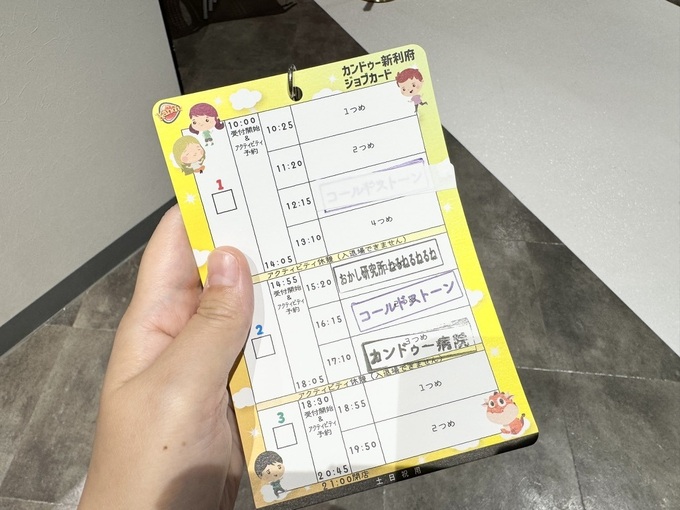 カンドゥー新利府
ジョブカード
1
10:00
受付開始
&
アクティビティ
予約
10:25
1つめ
11:20
2つめ
12:15
コールドストーン
13:10
4つめ
14:05
アクティビティ休憩 (入退場できません)
2
14:55
受付開始
&
アクティビティ
予約
15:20
おかし研究所・ねるねるねるね
16:15
コールドストーン
17:10
3つめ
カンドゥー病院
18:05
アクティビティ休憩 (入退場できません)
3
18:30
受付開始
&
アクティビティ
予約
18:55
1つめ
19:50
2つめ
20:45
21:00閉店
土日祝用